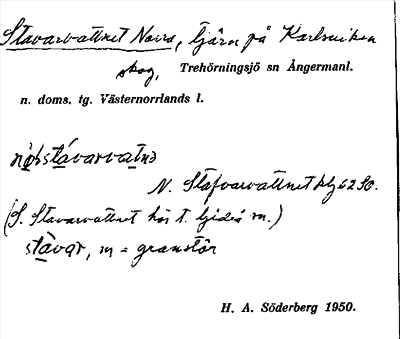 Stavarvattnet Norra, tjärn på Karlsviken
skog, Trehörningsjö sn Ångermanl.
n. doms. tg. Västernorrlands l.
N. Stafvarvattnet
(S. Stavarvattnet hör t.
stavar, m = granstör
H. A. Söderberg 1950.